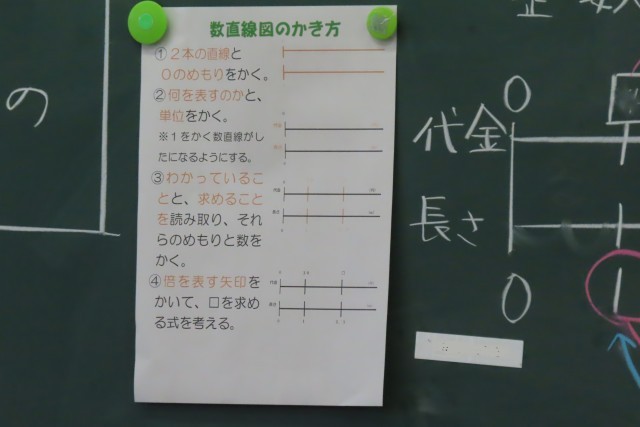 数直線図のかき方
①２本の直線と
０のめもりをかく。
②何を表すのかと、
単位をかく。
※１をかく数直線がし
たになるようにする。
③わかっているこ
とと、求めること
を読み取り、それ
らのめもりと数を
かく。
④倍を表す矢印を
かいて、□を求め
る式を考える。
の
0
代金
長さ
0
1